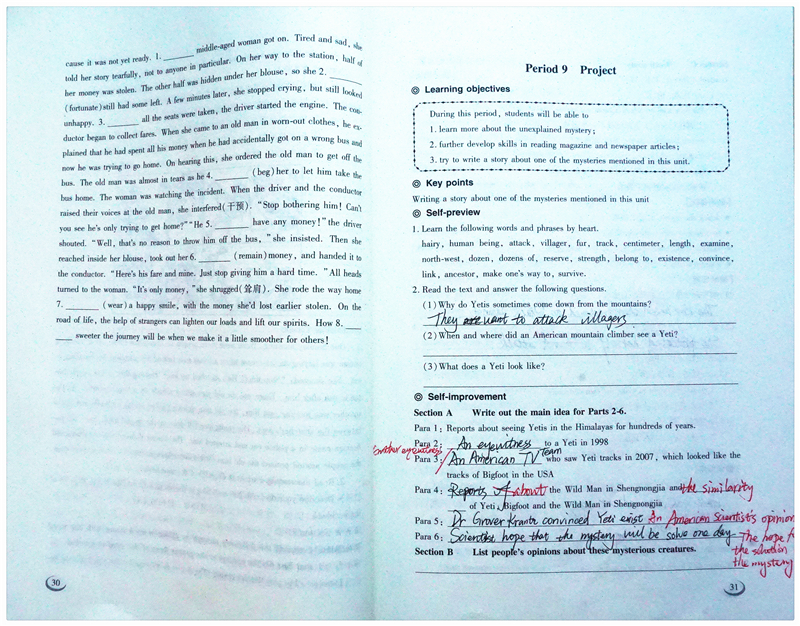 cause it was not yet ready. 1. ______ middle-aged woman got on. Tired and sad, she
told her story tearfully, not to anyone in particular. On her way to the station, half of
her money was stolen. The other half was hidden under her blouse, so she 2. ______
(fortunate)still had some left. A few minutes later, she stopped crying, but still looked
unhappy. 3. ______ all the seats were taken, the driver started the engine. The con-
ductor began to collect fares. When she came to an old man in worn-out clothes, he ex-
plained that he had spent all his money when he had accidentally got on a wrong bus and
now he was trying to go home. On hearing this, she ordered the old man to get off the
bus. The old man was almost in tears as he 4. ______ (beg)her to let him take the
bus home. The woman was watching the incident. When the driver and the conductor
raised their voices at the old man, she interfered(干预). “Stop bothering him! Can't
you see he's only trying to get home?”“He 5. ______ have any money!”the driver
shouted. “Well, that's no reason to throw him off the bus,”she insisted. Then she
reached inside her blouse, took out her 6. ______ (remain)money, and handed it to
the conductor. “Here's his fare and mine. Just stop giving him a hard time. ”All heads
turned to the woman. “It's only money, ”she shrugged(耸肩). She rode the way home
7. ______ (wear)a happy smile, with the money she'd lost earlier stolen. On the
road of life, the help of strangers can lighten our loads and lift our spirits. How 8. ___
___ sweeter the journey will be when we make it a little smoother for others!
30
Period 9 Project
◎ Learning objectives
During this period, students will be able to
1. learn more about the unexplained mystery;
2. further develop skills in reading magazine and newspaper articles;
3. try to write a story about one of the mysteries mentioned in this unit.
◎ Key points
Writing a story about one of the mysteries mentioned in this unit
◎ Self-preview
1. Learn the following words and phrases by heart.
hairy, human being, attack, villager, fur, track, centimeter, length, examine,
north-west, dozen, dozens of, reserve, strength, belong to, existence, convince,
link, ancestor, make one's way to, survive.
2. Read the text and answer the following questions.
(1) Why do Yetis sometimes come down from the mountains?
They want to attack villagers
(2) When and where did an American mountain climber see a Yeti?
(3) What does a Yeti look like?
◎ Self-improvement
Section A Write out the main idea for Parts 2-6.
Para 1: Reports about seeing Yetis in the Himalayas for hundreds of years.
Para 2: An eyewitness to a Yeti in 1998
another eyewitness
Para 3: An American TV team who saw Yeti tracks in 2007, which looked like the
tracks of Bigfoot in the USA
Para 4: Reports of about the Wild Man in Shengnongjia and the similarity
of Yeti, Bigfoot and the Wild Man in Shengnongjia
Para 5: Dr Grover Krantz convinced Yeti exist An American Scientist's opinion
Para 6: Scientist hope that the mystery will be solve one day The hope f
the solution
the mystery
Section B List people's opinions about these mysterious creatures.
31